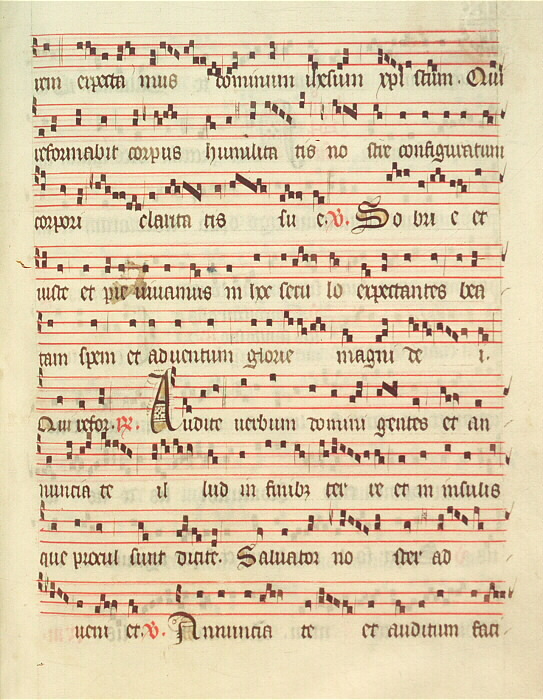 rem expecta mus dominum ihesum xpi stum. Qui
reformabit corpus humilita tis no stre configuratum
corpori clarita tis su e. V. So bri e et
iuste et pie uiuamus in hoc secu lo expectantes bea
tam spem et aduentum glorie magni de i.
Qui refor. R. Audite uerbum domini gentes et an
nuncia te il lud in finibz ter re et in insulis
que procul sunt dicite. Saluator no ster ad
ueni et. V. Annuncia te et auditum faci